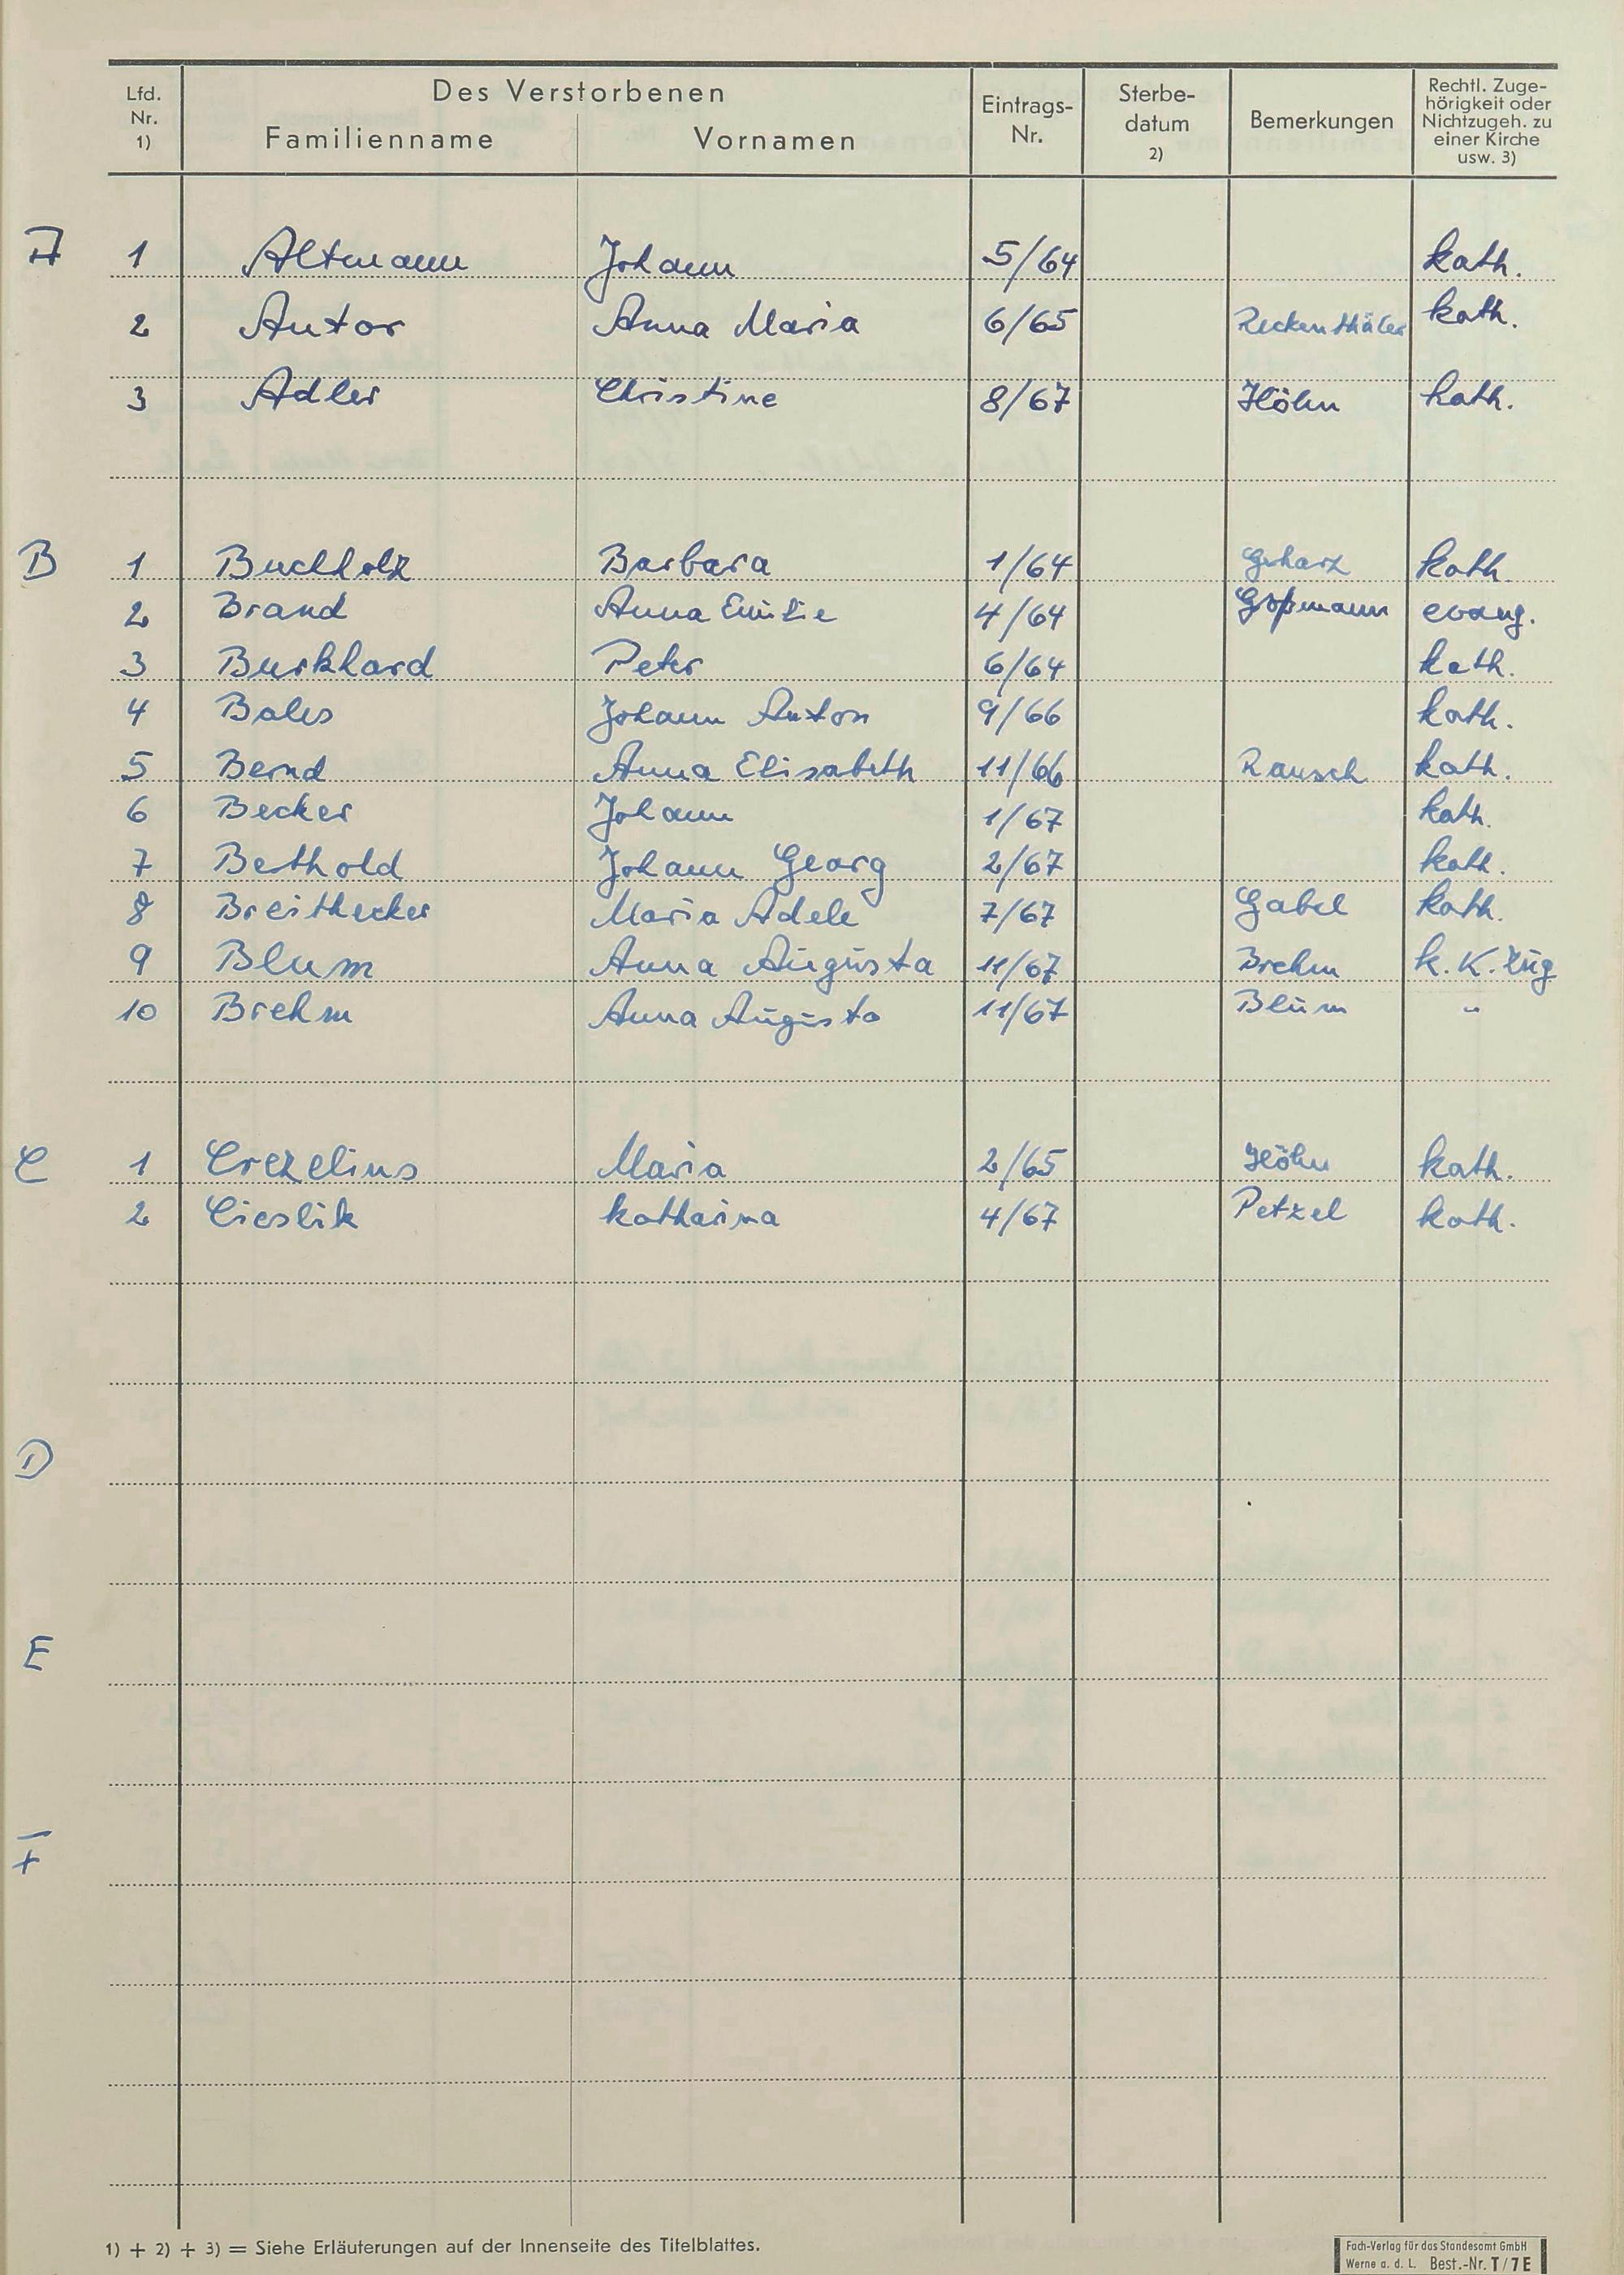 Lfd. Nr. 1) Des Verstorbenen Familienname Vornamen Eintrags-Nr. Sterbe-datum 2) Bemerkungen Rechtl. Zuge-hörigkeit oder Nichtzugeh. zu einer Kirche usw. 3)
A 1 Altmann Johann 5/64 kath.
2 Autor Anna Maria 6/65 Reckenthäler kath.
3 Adler Christine 8/67 Höhn kath.
B 1 Buchholz Barbara 1/64 Gerharz kath.
2 Brand Anna Emilie 4/64 Großmann evang.
3 Burkhard Peter 6/64 kath.
4 Bales Johann Anton 9/66 kath.
5 Bernd Anna Elisabeth 11/66 Rausch kath.
6 Becker Johann 1/67 kath.
7 Bethold Johann Georg 2/67 kath.
8 Breithecker Maria Adele 7/67 Gabel kath.
9 Blum Anna Augusta 11/67 Brehm k. K. Zug
10 Brehm Anna Augusta 11/67 Blum "
C 1 Crezelius Maria 2/65 Höhn kath.
2 Cieslik Katharina 4/67 Petzel kath.
D
E
F
1) + 2) + 3) = Siehe Erläuterungen auf der Innenseite des Titelblattes.
Fach-Verlag für das Standesamt GmbH
Werne a. d. L. Best.-Nr. T/7E